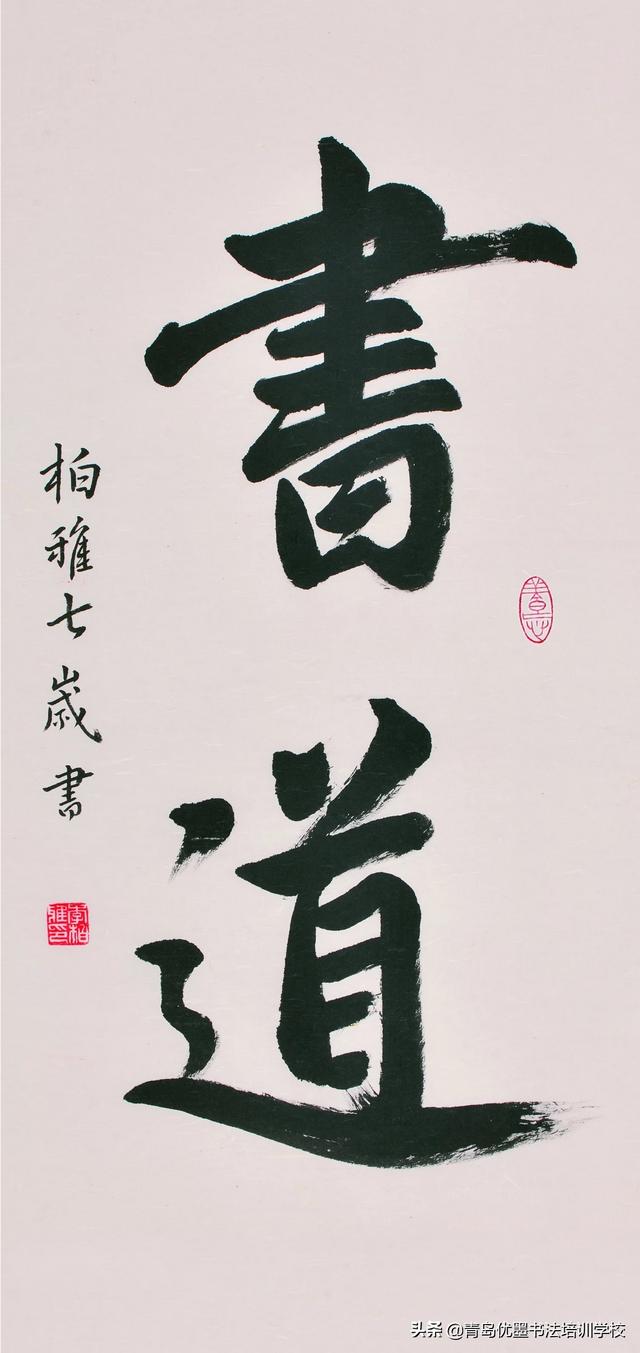 書道
柏雅七歲書
李柏雅印
善意
头条 @青岛优墨书法培训学校